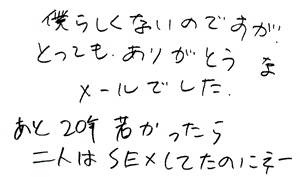 僕らしくないのですが!
とっても.ありがとう な
メールでした.
あと 20年 若かったら
二人は SEXしてたのにネー